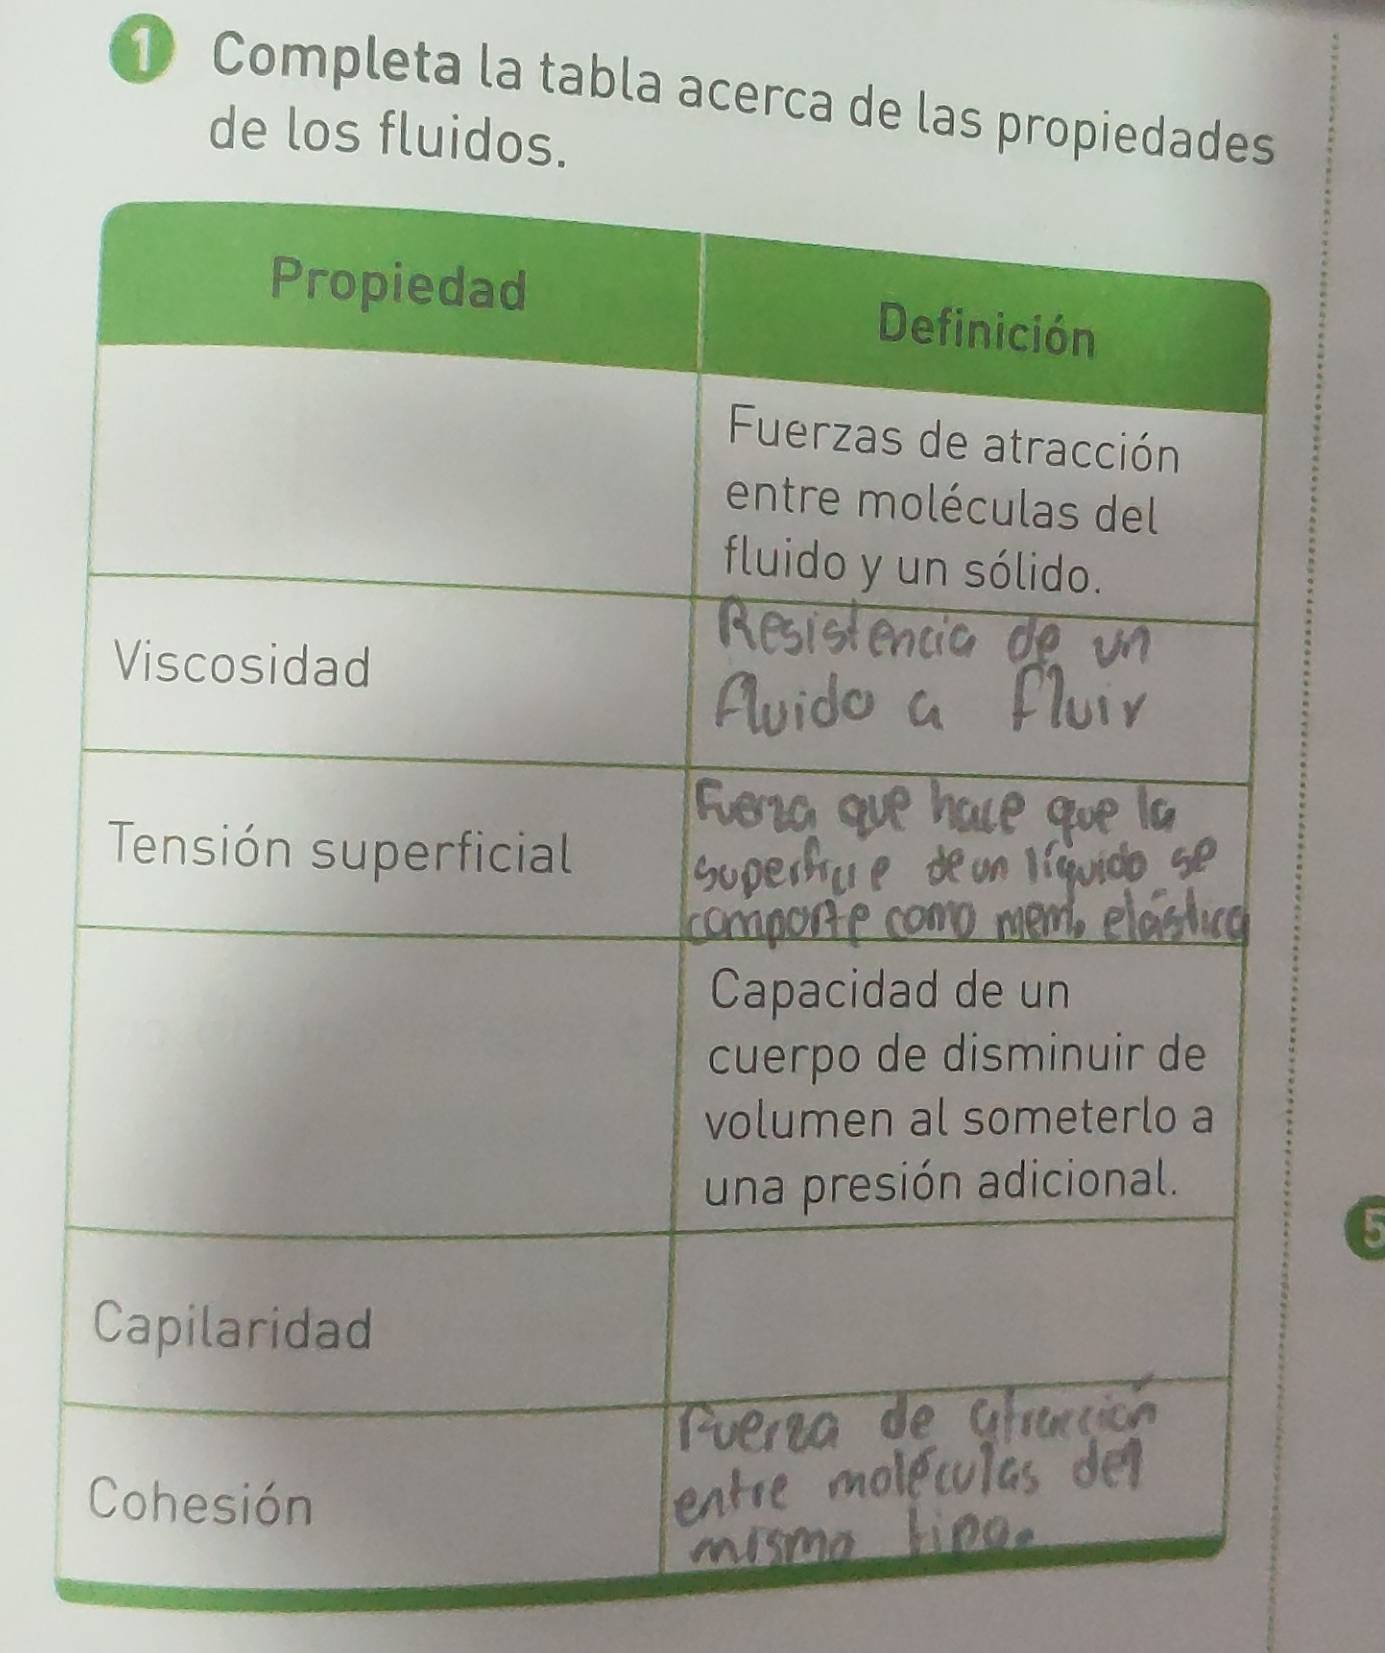 1 Completa la tabla acerca de las propiedades
de los fluidos.
Propiedad
Definición
Fuerzas de atracción
entre moléculas del
fluido y un sólido.
Viscosidad
Resistencia de un
fluido a fluir
Tensión superficial
Fuerza que hace que la
superficie de un líquido se
comporte como mem. elástica
Capacidad de un
cuerpo de disminuir de
volumen al someterlo a
una presión adicional.
5
Capilaridad
Cohesión
Fuerza de atracción
entre moléculas del
mismo tipo.